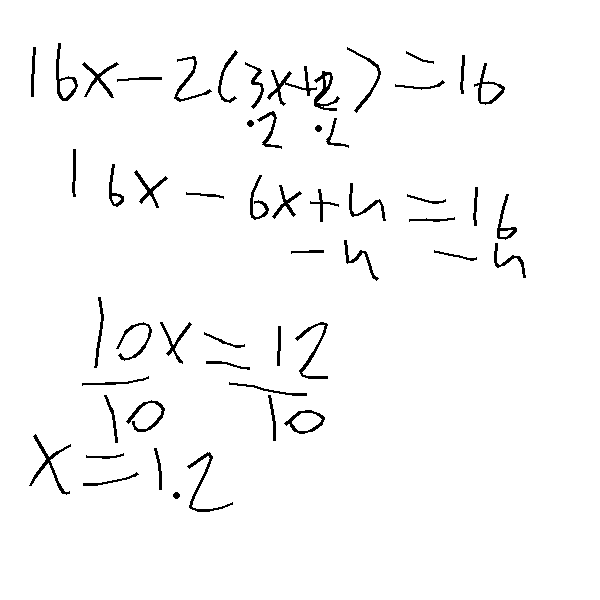 16x-2(3x+2)=16
·2 ·2
16x-6x+4=16
-4 -4
10x=12
10 10
x=1.2